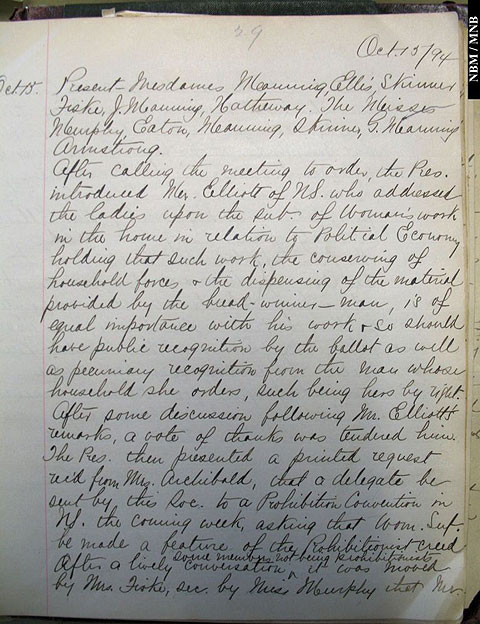 29
Oct. 15/94
Oct. 15.
Present - Mesdames Manning, Ellis, Skinner,
Fiske, J. Manning, Hatheway. The Misses
Murphy, Eaton, Manning, Skinner, G. Manning
Armstrong.
After calling the meeting to order, the Pres.
introduced Mr. Elliott of N.S. who addressed
the ladies upon the sub. of Woman's work
in the home in relation to Political Economy
holding that such work, the conserving of
household forces, & the dispensing of the material
provided by the bread-winner - man, is of
equal importance with his work & so should
have public recognition by the ballot as well
as pecuniary recognition from the man whose
household she orders, such being hers by right.
After some discussion following Mr. Elliott's
remarks, a vote of thanks was tendered him.
The Pres. then presented a printed request
rec'd from Mrs. Archibald, that a delegate be
sent by this Soc. to a Prohibition Convention in
N.S. the coming week, asking that Wom. Suf.
be made a feature of the Prohibitionist creed
some members not being prohibitionists
After a lively conversation ^ it was moved
by Mrs. Fiske, sec. by Miss Murphy that Mr.
NBM / MNB